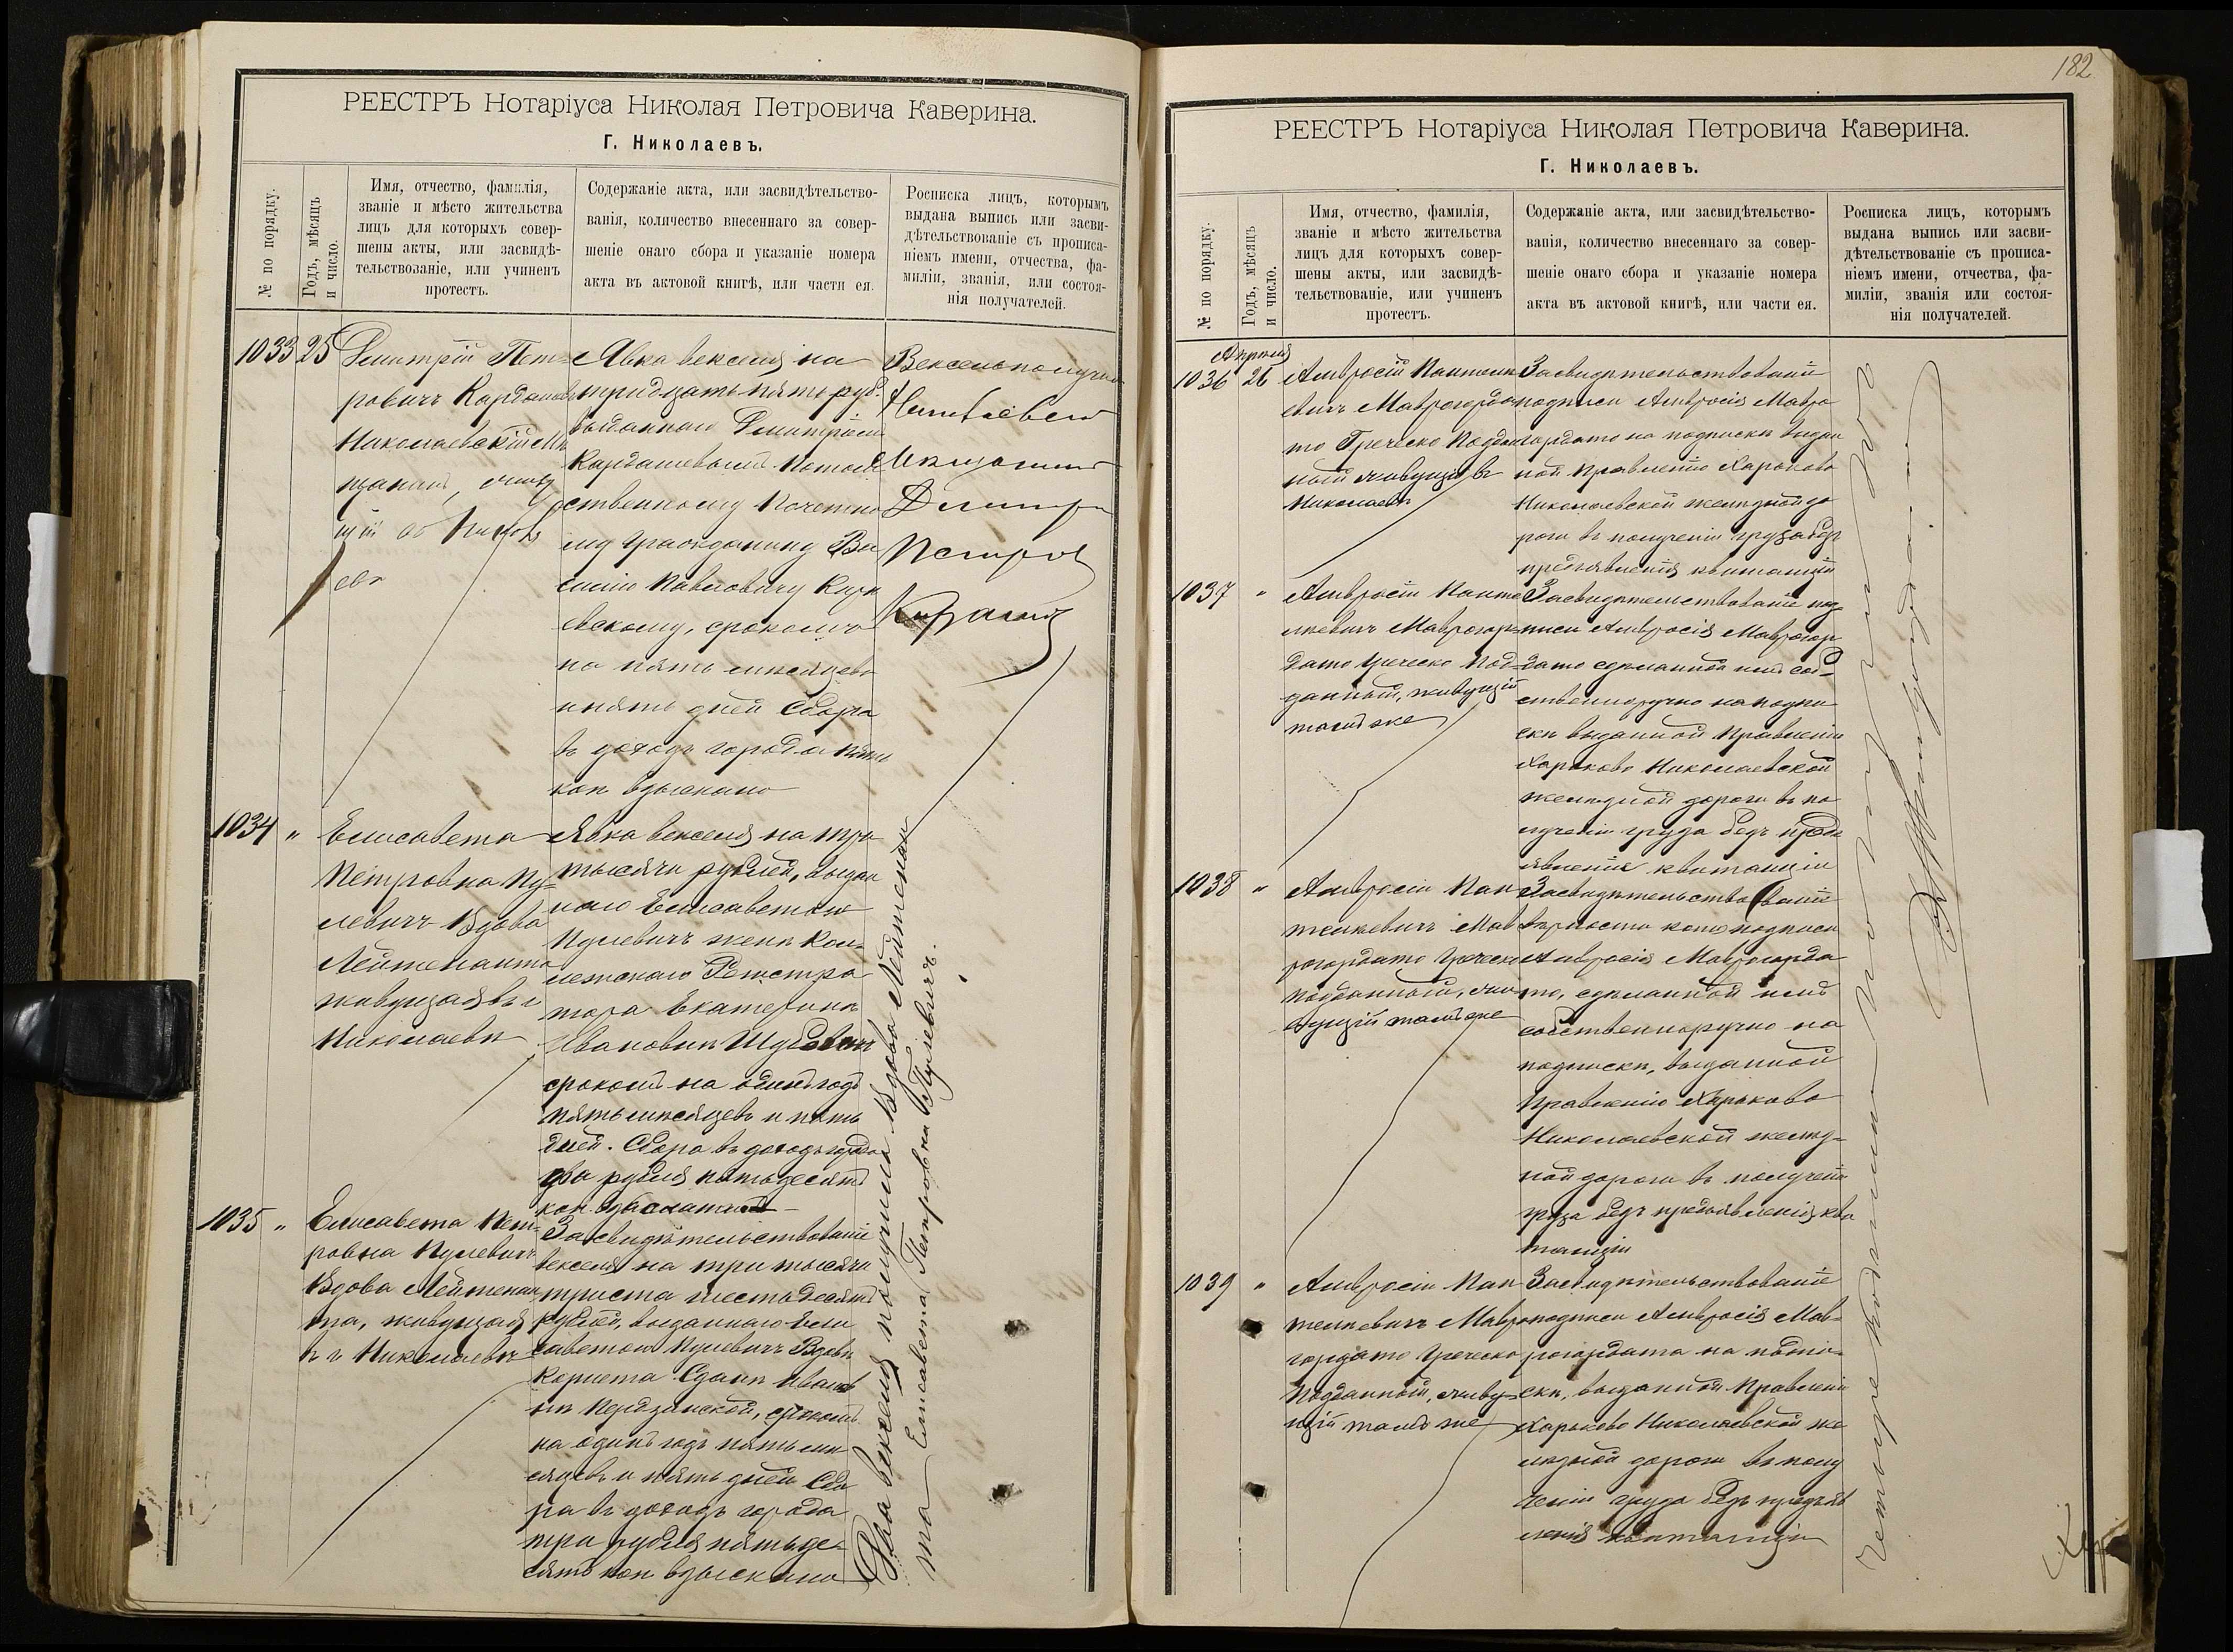 РЕЕСТРЪ Нотаріуса Николая Петровича Каверина.
Г. Николаевъ.
№ по порядку.
Годъ, мѣсяцъ
и число.
Имя, отчество, фамилія,
званіе и мѣсто жительства
лицъ для которыхъ совер-
шены акты, или засвидѣ-
тельствованіе, или учиненъ
протестъ.
Содержаніе акта, или засвидѣтельство-
ванія, количество внесеннаго за совер-
шеніе онаго сбора и указаніе номера
акта въ актовой книгѣ, или части ея.
Росписка лицъ, которымъ
выдана выпись или засви-
дѣтельствованіе съ прописа-
ніемъ имени, отчества, фа-
миліи, званія, или состоя-
нія получателей.
1033 25
Дмитрій Пет-
ровичъ
Николаевскій Мѣ
щанинъ,
Явка векселя на
тридцать пять руб.
выданнаго Дмитріемъ
Потом
ственному Почетно
му Гражданину Ва
силію Павловичу
евскому, срокомъ
на пять мѣсяцевъ
и пять дней Сбора
въ доходъ города пять
коп взыскано
Вексель получилъ
1034 "
Елисавета
Петровна Пу-
левичъ Вдова
Лейтенанта
живущая въ г
Николаевѣ
Явка векселя на три
тысячи рублей, выдан
наго Елисаветою
Пулевичъ женѣ Кол-
лежскаго Регистра
тора Екатеринѣ
Ивановнѣ
срокомъ на одинъ годъ
пять мѣсяцевъ и пять
дней. Сбора въ доходъ города
два рубля пятьдесятъ
коп.
1035 "
Елисавета Пет-
ровна Пулевичъ
Вдова Лейтенан
та, живущая
въ г Николаевѣ
Засвидѣтельствованіе
векселя на три тысячи
триста шестьдесятъ
рублей, выданнаго Ели
саветою Пулевичъ Вдовѣ
Корнета
срокомъ
на одинъ годъ пять мѣ
сяцевъ и пять дней Сбо
ра въ доходъ города
три рубля пятьде-
сятъ коп взыскано
Два векселя получила Вдова Лейтенан
та Елисавета Петровна Пулевичъ.
182
РЕЕСТРЪ Нотаріуса Николая Петровича Каверина.
Г. Николаевъ.
№ по порядку.
Годъ, мѣсяцъ
и число.
Имя, отчество, фамилія,
званіе и мѣсто жительства
лицъ для которыхъ совер-
шены акты, или засвидѣ-
тельствованіе, или учиненъ
протестъ.
Содержаніе акта, или засвидѣтельство-
ванія, количество внесеннаго за совер-
шеніе онаго сбора и указаніе номера
акта въ актовой книгѣ, или части ея.
Росписка лицъ, которымъ
выдана выпись или засви-
дѣтельствованіе съ прописа-
ніемъ имени, отчества, фа-
миліи, званія или состоя-
нія получателей.
Апрѣля
1036 26
Амвросій Пантел
евичъ Маврогорда
то Греческо Поддан
ный живущій въ
Николаевѣ
Засвидѣтельствованіе
подписи Амвросія Мавро
гордато на подпискѣ выдан
ной Правленію Харьково
Николаевской желѣзной до
роги въ полученіи груза безъ
предъявленія квитанціи
1037 "
Амвросій Панте
лѣевичъ Маврогор-
дато Греческо Под-
данный, живущій
тамъ же
Засвидѣтельствованіе под
писи Амвросія Маврогор
дато сдѣланной имъ соб-
ственноручно на подпи
скѣ выданной Правленію
Харьково Николаевской
желѣзной дороги въ по
лученіи груза безъ предъ
явленія квитанціи
1038 "
Амвросій Пан
телѣевичъ Мав
рогордато Греческо
подданный, жи-
вущій тамъ же
Засвидѣтельствованіе
вѣрности подписи
Амвросія Маврогорда
то, сдѣланной имъ
собственноручно на
подпискѣ, выданной
Правленію Харьково
Николаевской желѣз-
ной дороги въ полученіи
груза безъ предъявленія кви
танціи
1039 "
Амвросій Пан
телѣевичъ Мавро
гордато Греческо
Подданный, живу-
щій тамъ же
Засвидѣтельствованіе
подписи Амвросія Мав-
рогордато на подпи-
скѣ, выданной Правленію
Харьково Николаевской же
лѣзной дороги въ полу
ченіи груза безъ предъяв
ленія квитанціи